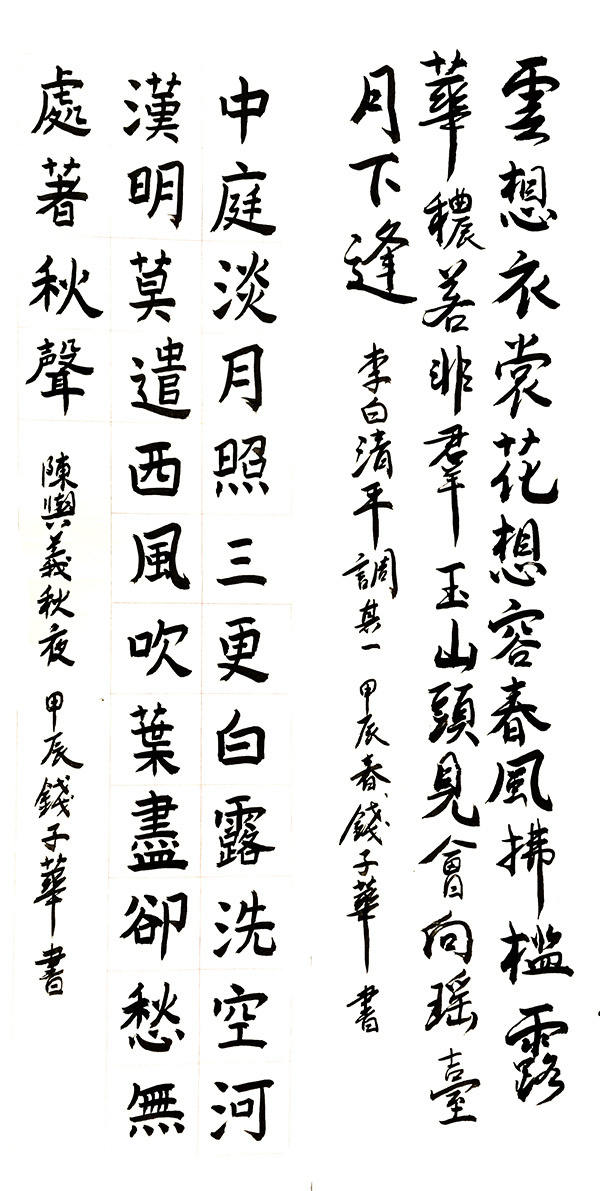 雲想衣裳花想容春風拂檻露
華穠若非羣玉山頭見會向瑶臺
月下逢
李白清平調其一 甲辰春錢子華書
中庭淡月照三更白露洗空河
漢明莫遣西風吹葉盡卻愁無
處著秋聲
陳與義秋夜 甲辰錢子華書